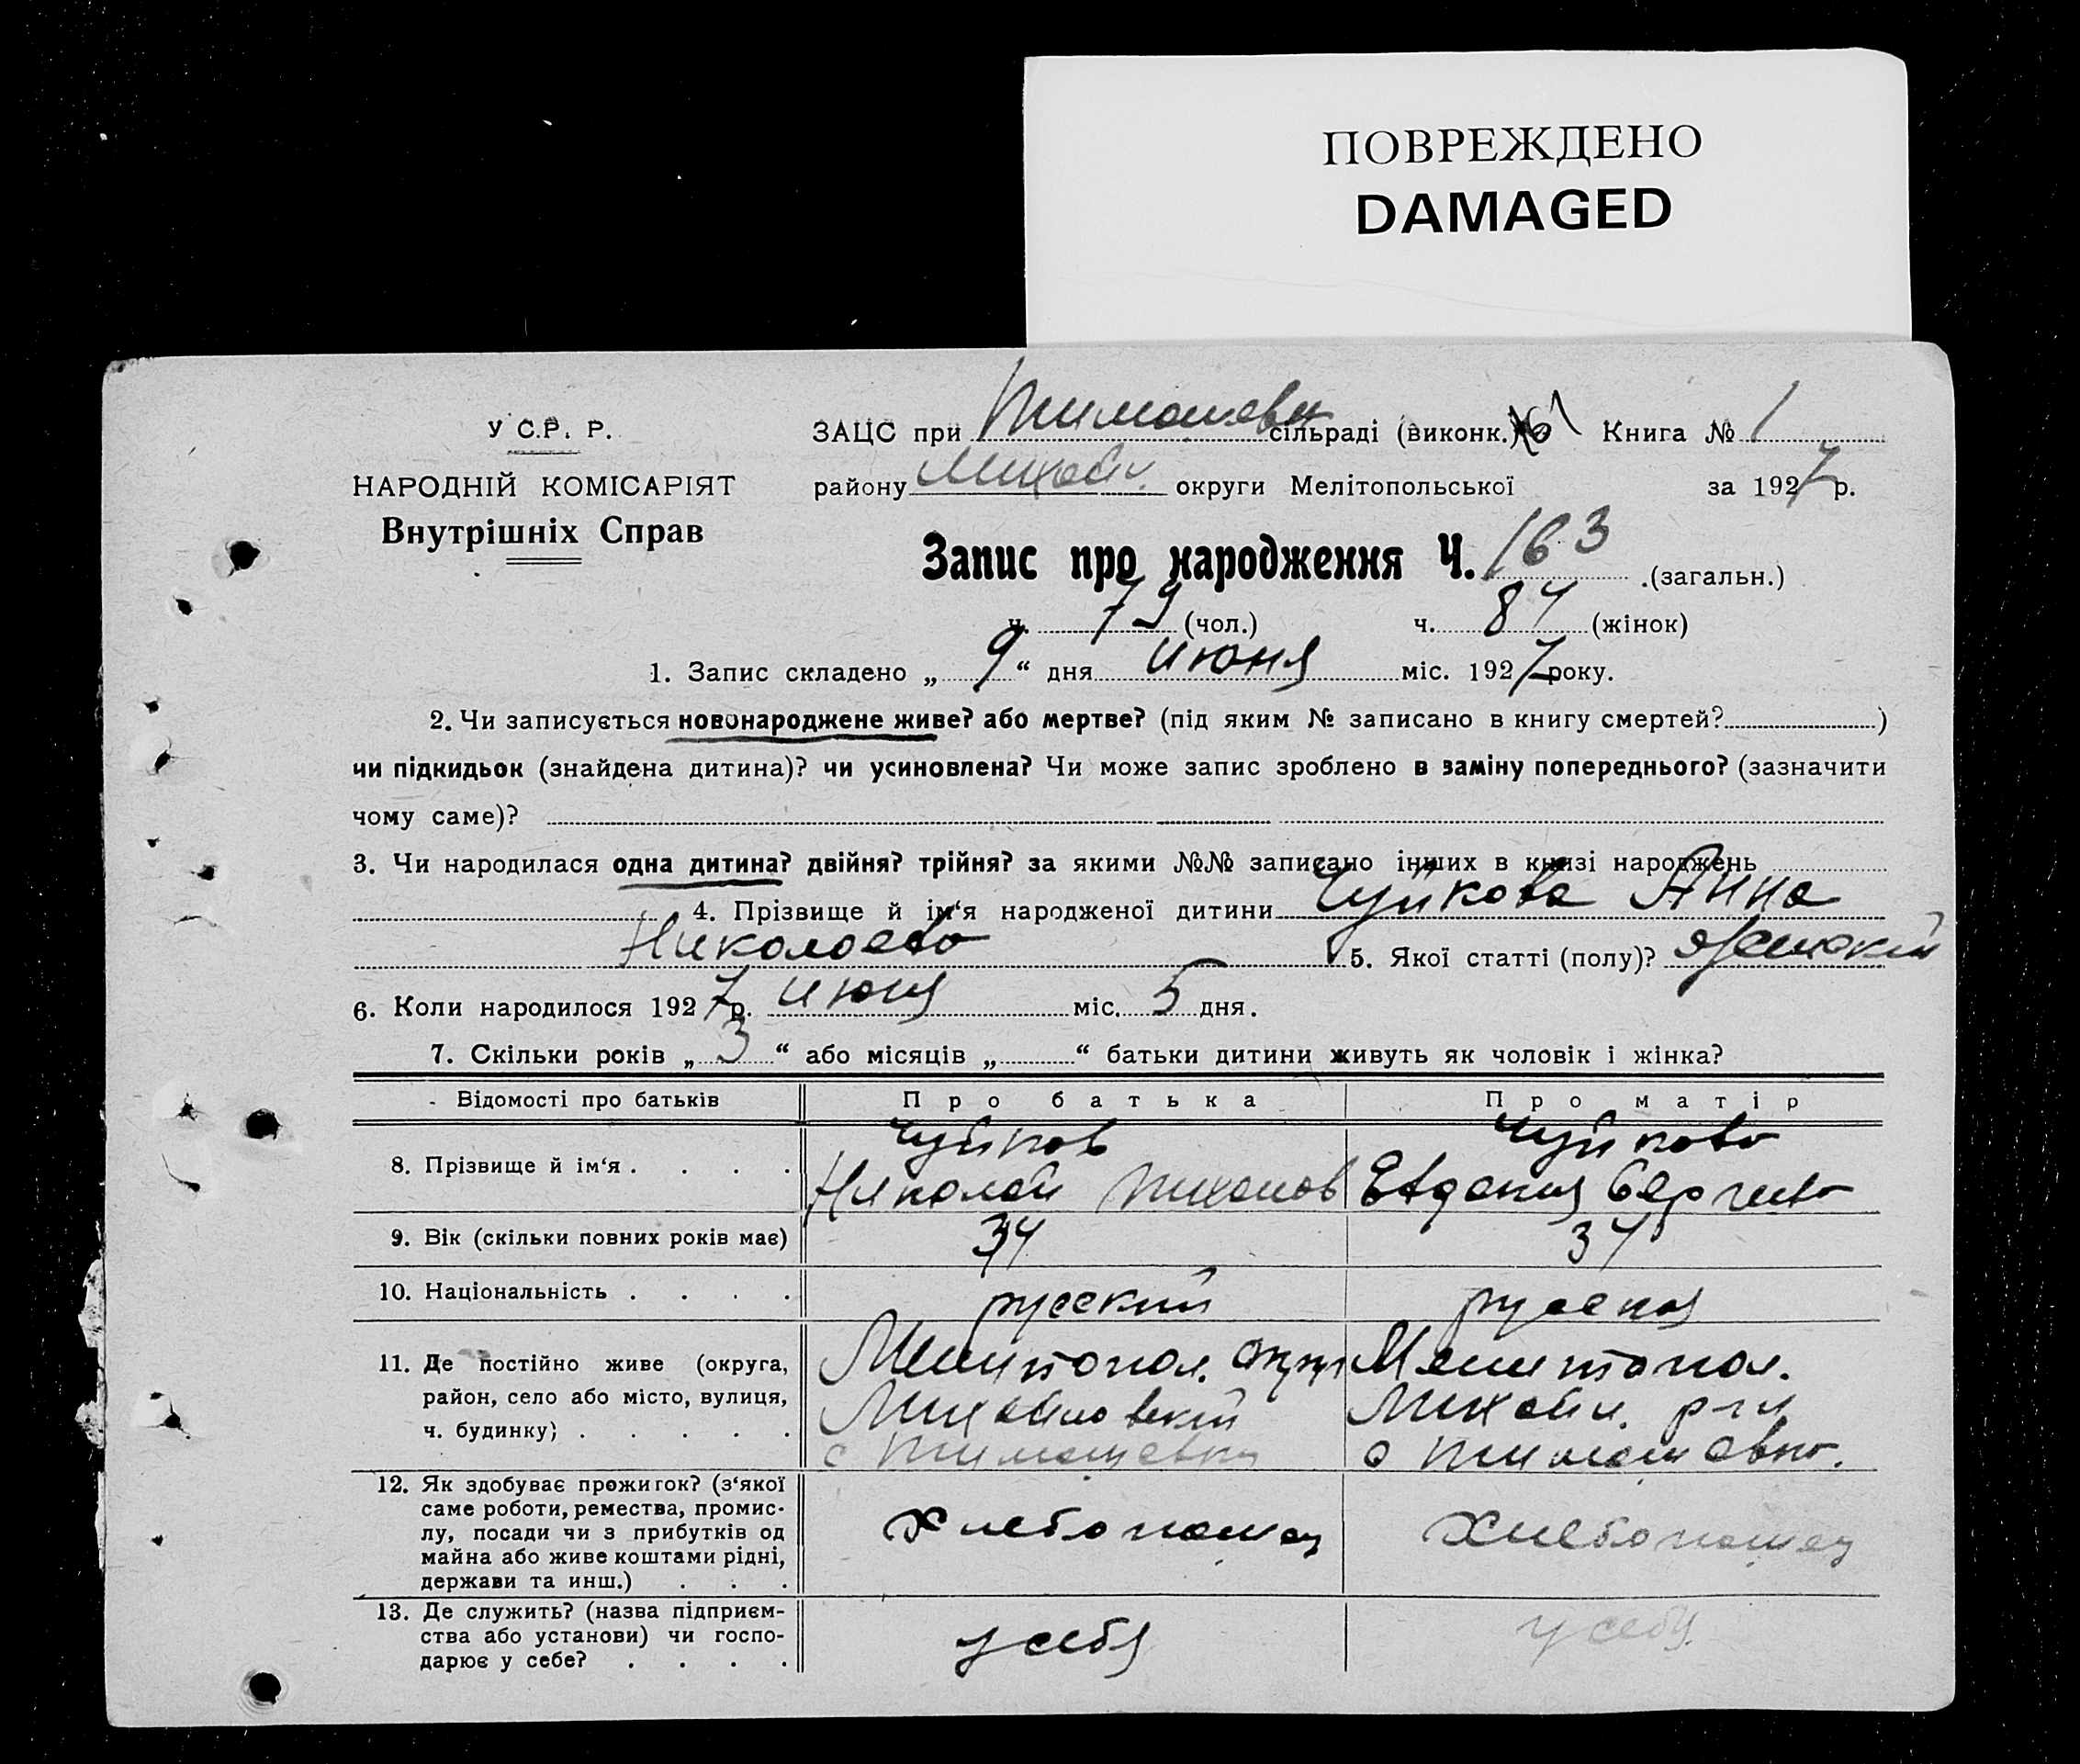 ПОВРЕЖДЕНО
DAMAGED
У С.Р. Р.
НАРОДНІЙ КОМІСАРІЯТ
Внутрішніх Справ
ЗАЦС при Тимошевк сільраді (виконк.) Книга № 1
району Михайл. округи Мелітопольської за 1927 р.
Запис про народження Ч. 163 (загальн.)
ч. 79 (чол.) ч. 84 (жінок)
1. Запис складено „ 9 “ дня июня міс. 1927 року.
2. Чи записується новонароджене живе? або мертве? (під яким № записано в книгу смертей? )
чи підкидьок (знайдена дитина)? чи усиновлена? Чи може запис зроблено в заміну попереднього? (зазначити
чому саме)?
3. Чи народилася одна дитина? двійня? трійня? за якими №№ записано інших в книзі народжень
4. Прізвище й ім‘я народженої дитини Чуйкова Анна
Николаева 5. Якої статті (полу)? женский
6. Коли народилося 1927 р. июня міс. 5 дня.
7. Скільки років „ 3 “ або місяців „ “ батьки дитини живуть як чоловік і жінка?
Відомості про батьків Про батька Про матір
8. Прізвище й ім‘я . . . . Чуйков Николай Тиханов Чуйкова Евдокия Сергеева
9. Вік (скільки повних років має) 34 34
10. Національність . . . . русский русская
11. Де постійно живе (округа, Мелитопол. округ Мелитопол.
район, село або місто, вулиця, Михайловский Михайл. р-н
ч. будинку) . . . . . с Тимошевка с Тимошевка.
12. Як здобуває прожиток? (з‘якої
саме роботи, ремества, промис-
лу, посади чи з прибутків од Хлебопашец Хлебопашец
майна або живе коштами рідні,
держави та инш.) . . .
13. Де служить? (назва підприєм-
ства або установи) чи госпо- у себя у себя
дарює у себе? . . . .